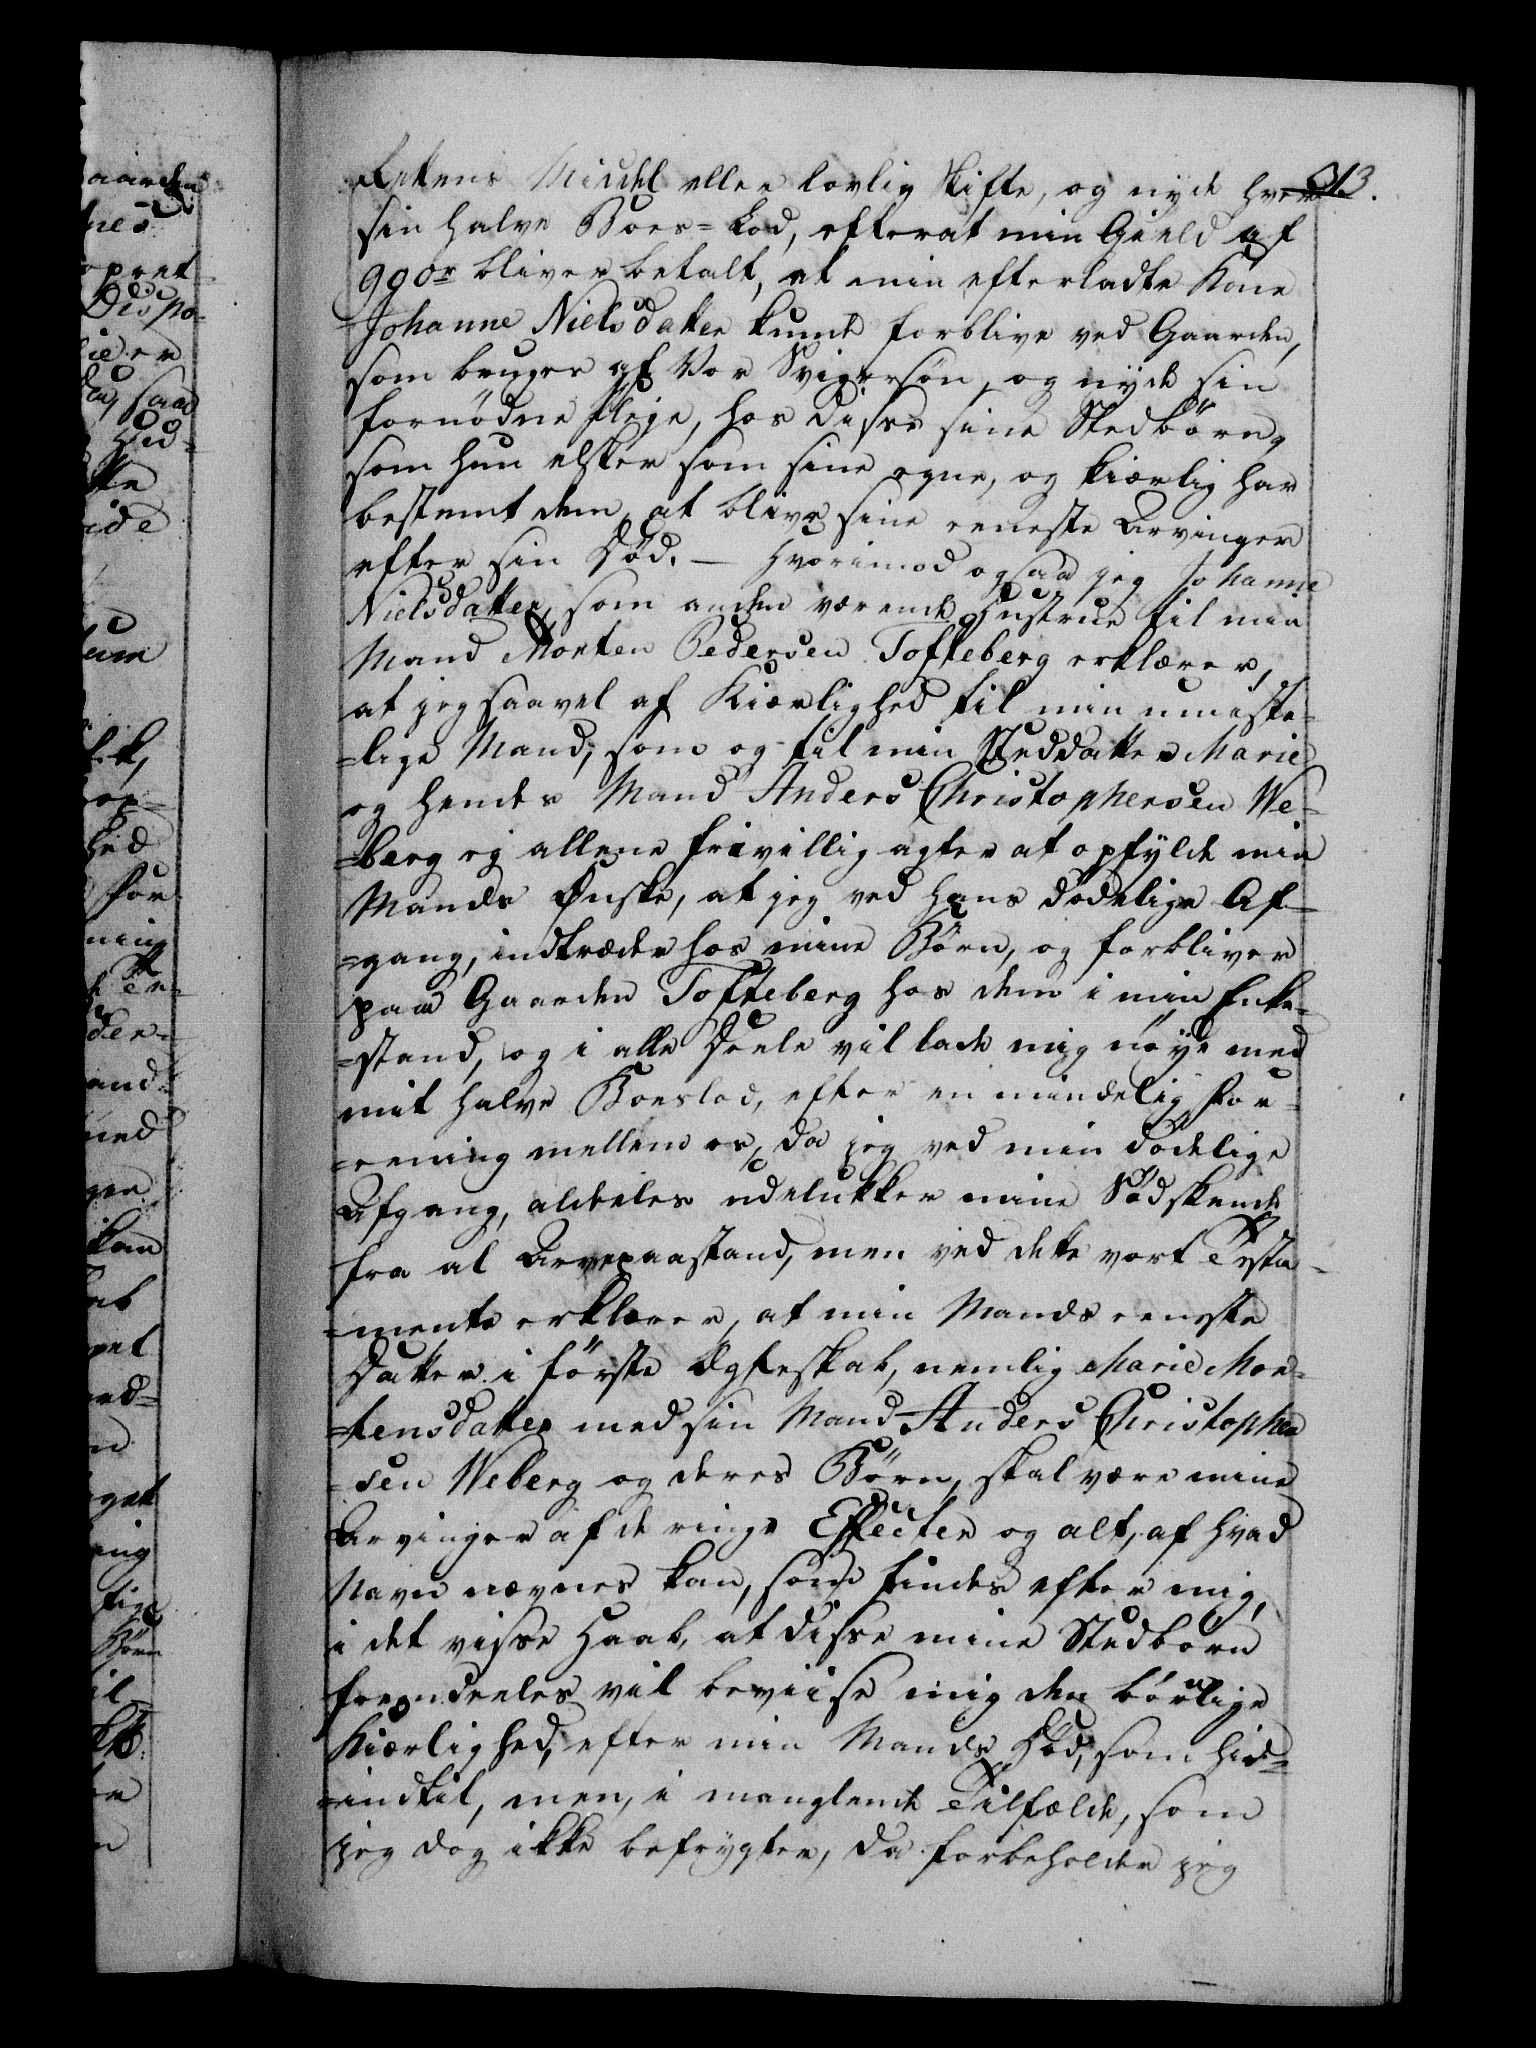 313.
Rettens Middel eller lovlig Skifte, og nyde hver
sin halve Boes=Lod, efterat min Gield af
990r bliver betalt, at min efterladte Kone
Johanne Nielsdatter kunde forblive ved Gaarden,
som bruges af Vor Svigersön, og nyde sin
fornödne Pleie, hos disse sine Stedbörn,
som hun elsker som sine egne, og kiærlig har
bestemt dem, at blive sine eeneste Arvinger
efter sin Död. — Hvorimod ogsaa jeg Johanne
Nielsdatter, som anden værende Hustrue til min
Mand Morten Pedersen Tofteberg erklærer,
at jeg saavel af Kiærlighed til min umiste-
=lige Mand, som og til min Steddatter Marie
og hendes Mand Anders Christophersen We-
=berg ej allene frivillig agter at opfylde min
Mands Ønske, at jeg ved hans dödelige Af-
=gang, indtræder hos mine Börn, og forbliver
paa Gaarden Tofteberg hos dem i min Enke-
=stand, og i alle Deele vil lade mig nöye med
mit halve Boeslod, efter en mindelig For-
=eening mellem os, da jeg ved min dödelige
Afgang, aldeeles udelukker mine Södskende
fra al Arvepaastand, men ved dette vort Testa-
=mente erklærer, at min Mands eeneste
Datter i förste Ægteskab, nemlig Marie Mor-
=tensdatter med sin Mand Anders Christopher
=sen Weberg og deres Börn, skal være mine
Arvinger af de ringe Effecter og alt, af hvad
Navn nævnes kan, som findes efter mig,
i det visse Haab, at disse mine Stedbörn
fremdeeles vil beviise mig den börnlige
Kiærlighed, efter min Mands Död, som hid-
=indtil, men, i manglende Tilfælde, som
jeg dog ikke befrygter, da forbeholder jeg